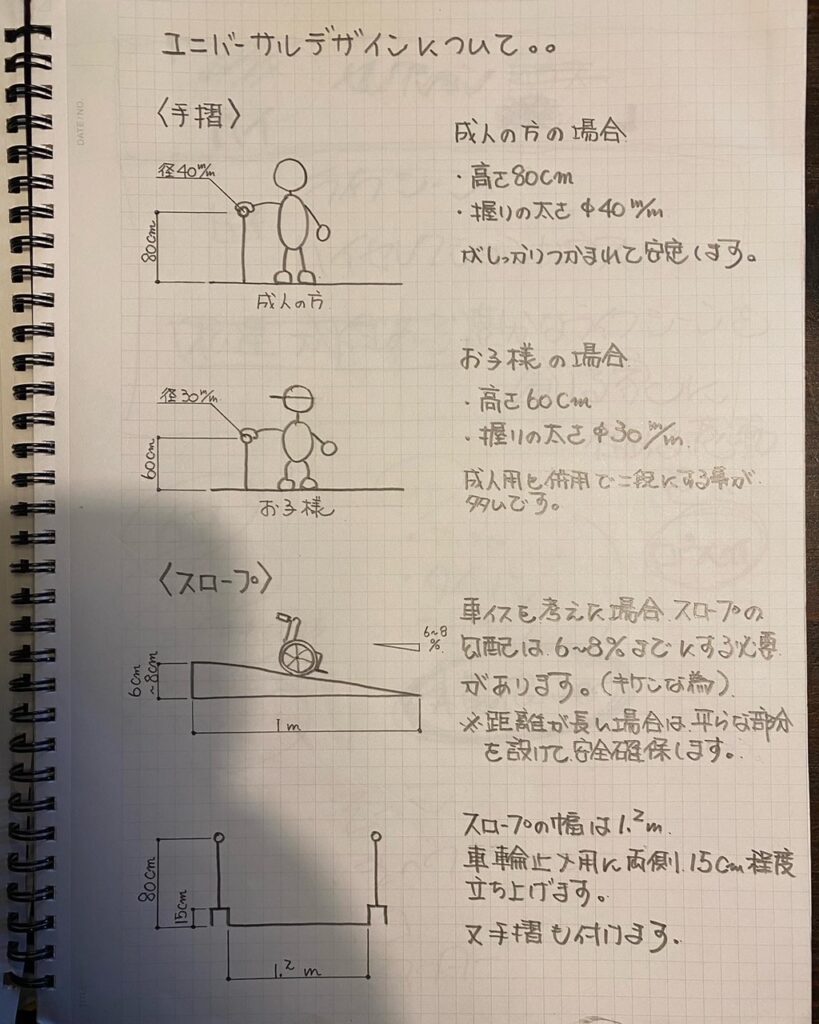 ユニバーサルデザインについて。。
〈手摺〉
径40m/m
80cm
成人の方
成人の方の場合
・高さ80cm
・握りの太さ φ40m/m
がしっかりつかまれて安定します。
径30m/m
60cm
お子様
お子様の場合
・高さ60cm
・握りの太さ φ30m/m
成人用も併用で二段にする事が
多いです。
〈スロープ〉
6cm
~8cm
1m
6~8
%
車イスを考えた場合スロープの
勾配は6~8%までにする必要
があります。(キケンな為)
※距離が長い場合は、平らな部分
を設けて安全確保します。
80cm
15cm
1.2m
スロープの幅は1.2m
車輪止メ用に両側15cm程度
立ち上げます。
又手摺も付けます。
DATE/NO.